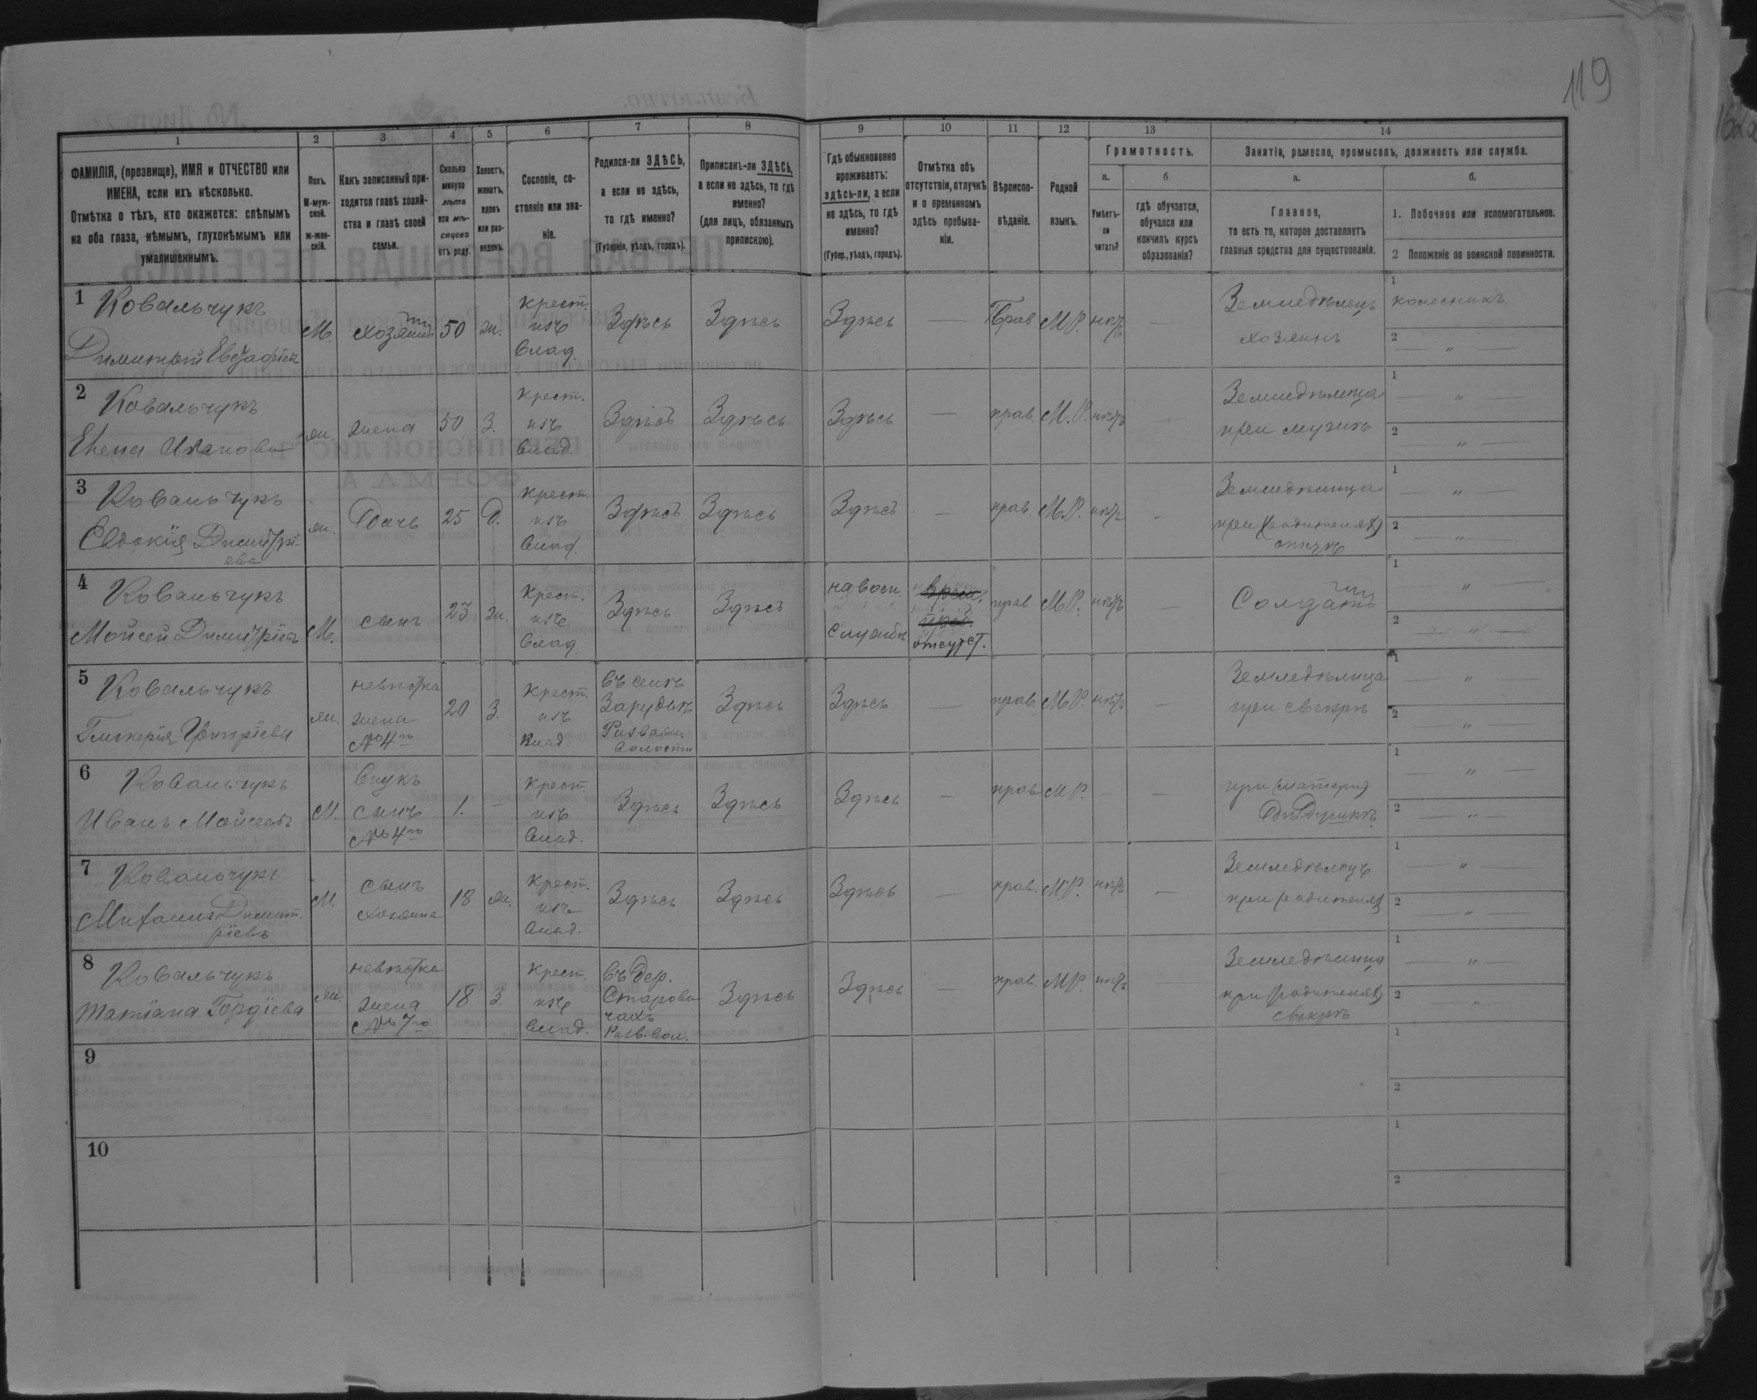 119
1 2 3 4 5 6 7 8 9 10 11 12 13 14
ФАМИЛІЯ, (прозвище), ИМЯ и ОТЧЕСТВО или
ИМЕНА, если ихъ нѣсколько.
Отмѣтка о тѣхъ, кто окажется: слѣпымъ
на оба глаза, нѣмымъ, глухонѣмымъ или
умалишеннымъ.
Полъ.
М-муж-
ской.
ж-жен-
скій.
Какъ записанный при-
ходится главѣ хозяй-
ства и главѣ своей
семьи.
Сколько
минуло
лѣтъ
или мѣ-
сяцевъ
отъ роду.
Холостъ,
женатъ,
вдовъ
или раз-
веденъ.
Сословіе, со-
стояніе или зва-
ніе.
Родился-ли ЗДѢСЬ,
а если не здѣсь,
то гдѣ именно?
(Губернія, уѣздъ, городъ).
Приписанъ-ли ЗДѢСЬ,
а если не здѣсь, то гдѣ
именно?
(для лицъ, обязанныхъ
припискою).
Гдѣ обыкновенно
проживаетъ:
здѣсь-ли, а если
не здѣсь, то гдѣ
именно?
(Губер., уѣздъ, городъ).
Отмѣтка объ
отсутствіи, отлучкѣ
и о временномъ
здѣсь пребыва-
ніи.
Вѣроиспо-
вѣданіе.
Родной
языкъ.
Грамотность.
а.
Умѣетъ-
ли
читать?
б.
гдѣ обучается,
обучался или
кончилъ курсъ
образованія?
Занятіе, ремесло, промыселъ, должность или служба.
а.
Главное,
то есть то, которое доставляетъ
главныя средства для существованія.
б.
1. Побочное или вспомогательное.
2 Положеніе по воинской повинности.
1 Ковальчукъ
Димитрій
М. хозяинъ 50 ж. крест. изъ влад. Здѣсь Здѣсь Здѣсь — Прав М.Р. нѣтъ —
Земледѣлецъ
хозяинъ
1 колесникъ
2 — „ —
2 Ковальчукъ
Елена Иванова
ж. жена 50 З. крест. изъ влад. Здѣсь Здѣсь Здѣсь — прав М.Р. нѣтъ —
Земледѣлица
при мужѣ
1 — „ —
2 — „ —
3 Ковальчукъ
Евдокія Димитрі-
ева
ж. дочь 25 д. крест. изъ влад. Здѣсь Здѣсь Здѣсь — прав М.Р. нѣтъ -
Земледѣлица
при
отцѣ
1 — „ —
2 — „ —
4 Ковальчукъ
Мойсей Димитріевъ
М. сынъ 23 ж. Крест. изъ влад Здѣсь Здѣсь
на воен
службѣ
отсутст.
прав М.Р. нѣтъ —
Солдатъ
1 „ —
2 — „ —
5 Ковальчукъ
Гликерія
ж.
невѣстка
жена
№4го
20 З. крест. изъ влад.
въ селѣ
Зарудьѣ
волости
Здѣсь Здѣсь — прав М.Р. нѣтъ —
Земледѣлица
при свекрѣ
1 — „ —
2 — „ —
6 Ковальчукъ
Иванъ Мойсеевъ
М.
внукъ
сынъ
№4го
1. — крест. изъ влад. Здѣсь Здѣсь Здѣсь — прав М.Р. — —
при матери
1 — „ —
2 — „ —
7 Ковальчукъ
Михаилъ Димит-
ріевъ
М.
сынъ
хозяина
18 ж. крест. изъ влад. Здѣсь Здѣсь Здѣсь — прав. М.Р. нѣтъ —
Земледѣлецъ
при родителяхъ
1 „ —
2 — „ —
8 Ковальчукъ
Татіана Гордіева
ж.
невѣстка
жена
№7го
18 З. крест. изъ влад.
въ дер.
Разв. вол.
Здѣсь Здѣсь — прав М.Р. нѣтъ —
Земледѣлица
при
свекрѣ
1 — „ —
2 — „ —
9
1
2
10
1
2